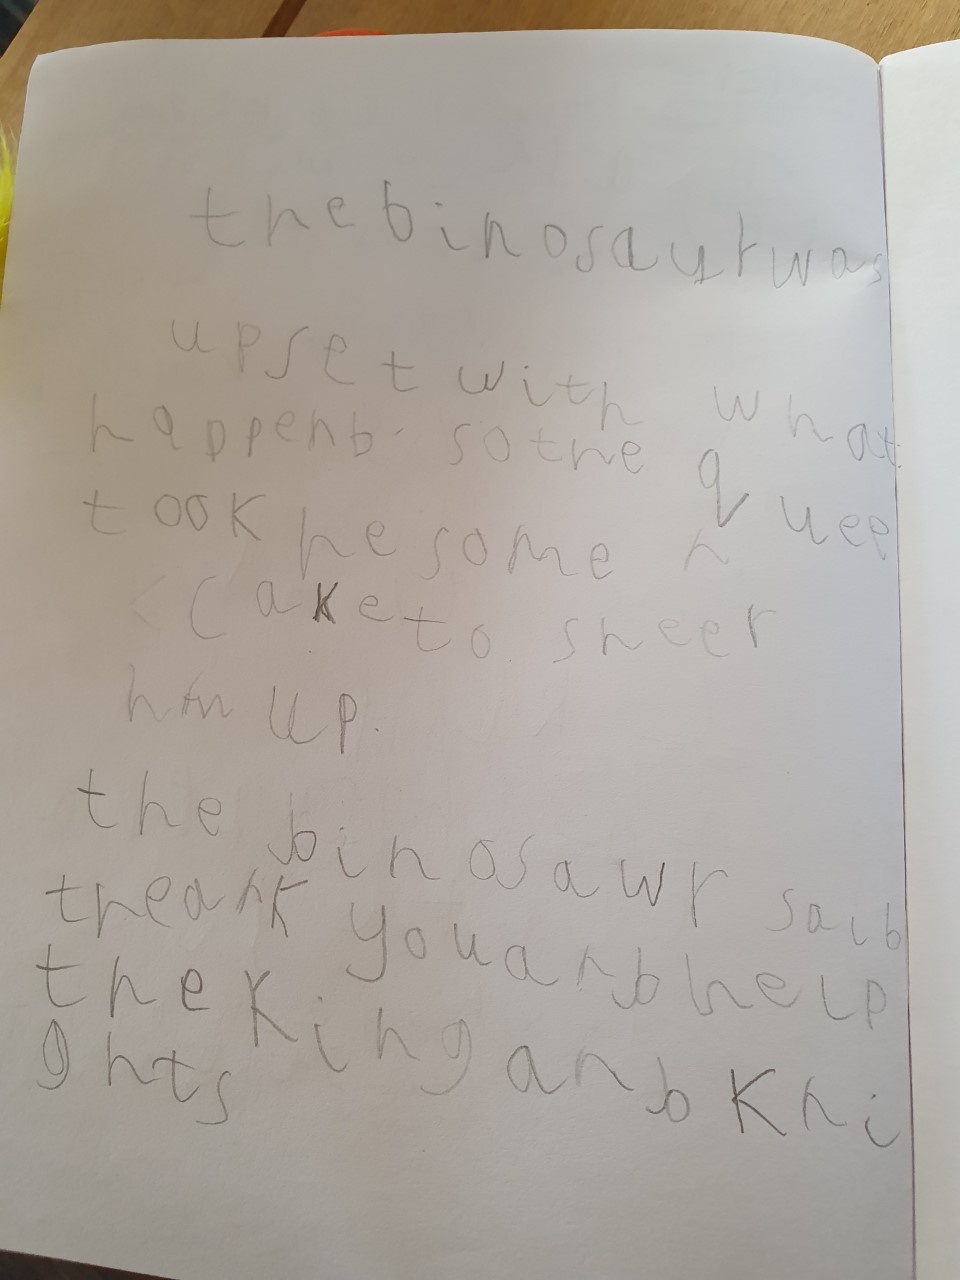 the binosaur was
upset with what
happenb. so the quee
took he some n
cake to sheer
him up.
the binosawr saib
theank you anb help
the King anb Kni
ghts